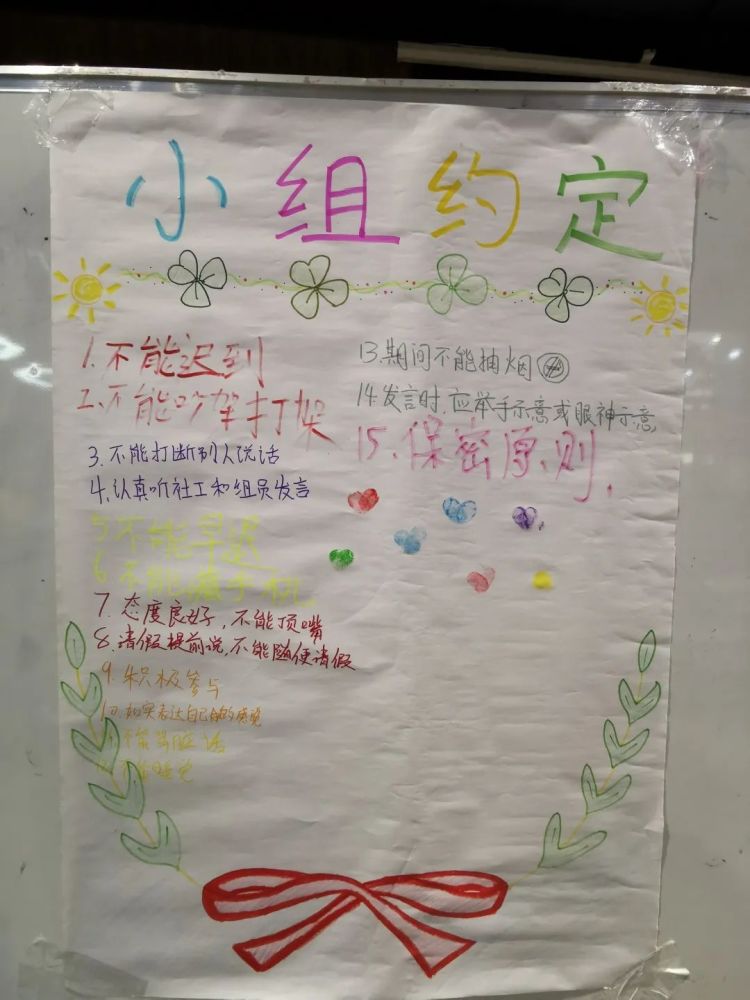 小组约定
1.不能迟到
2.不能吵架打架
3.不能打断别人说话
4.认真听社工和组员发言
5.不能早退
6.不能玩手机
7.态度良好，不能顶嘴
8.请假提前说，不能随便请假
9.积极参与
10.如实表达自己的感觉
11.不能骂脏话
12.不能睡觉
13.期间不能抽烟
14.发言时，应举手示意或眼神示意
15.保密原则.